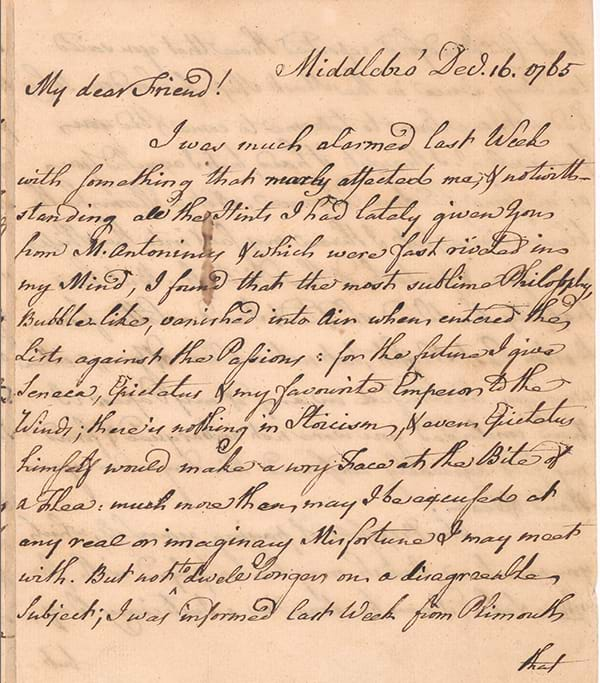 Middlebro' Decr. 16. 1765
My dear Friend!
I was much alarmed last Week
with something that nearly affected me, & notwith-
standing all the Hints I had lately given You
from M. Antoninus & which were fast rivited in
my Mind, I found that the most sublime Philosophy,
Bubble like, vanished into Air when entered the
Lists against the Passions: for the future I give
Seneca, Epictatus & my favourite Emperor to the
Winds; there is nothing in Stoicism, & even Epictatus
himself would make a wry Face at the Bite of
a Flea: much more then may I be excused at
any real or imaginary Misfortune I may meet
with. But not to dwell longer on a disagreeable
Subject; I was informed last Week from Plimouth
that